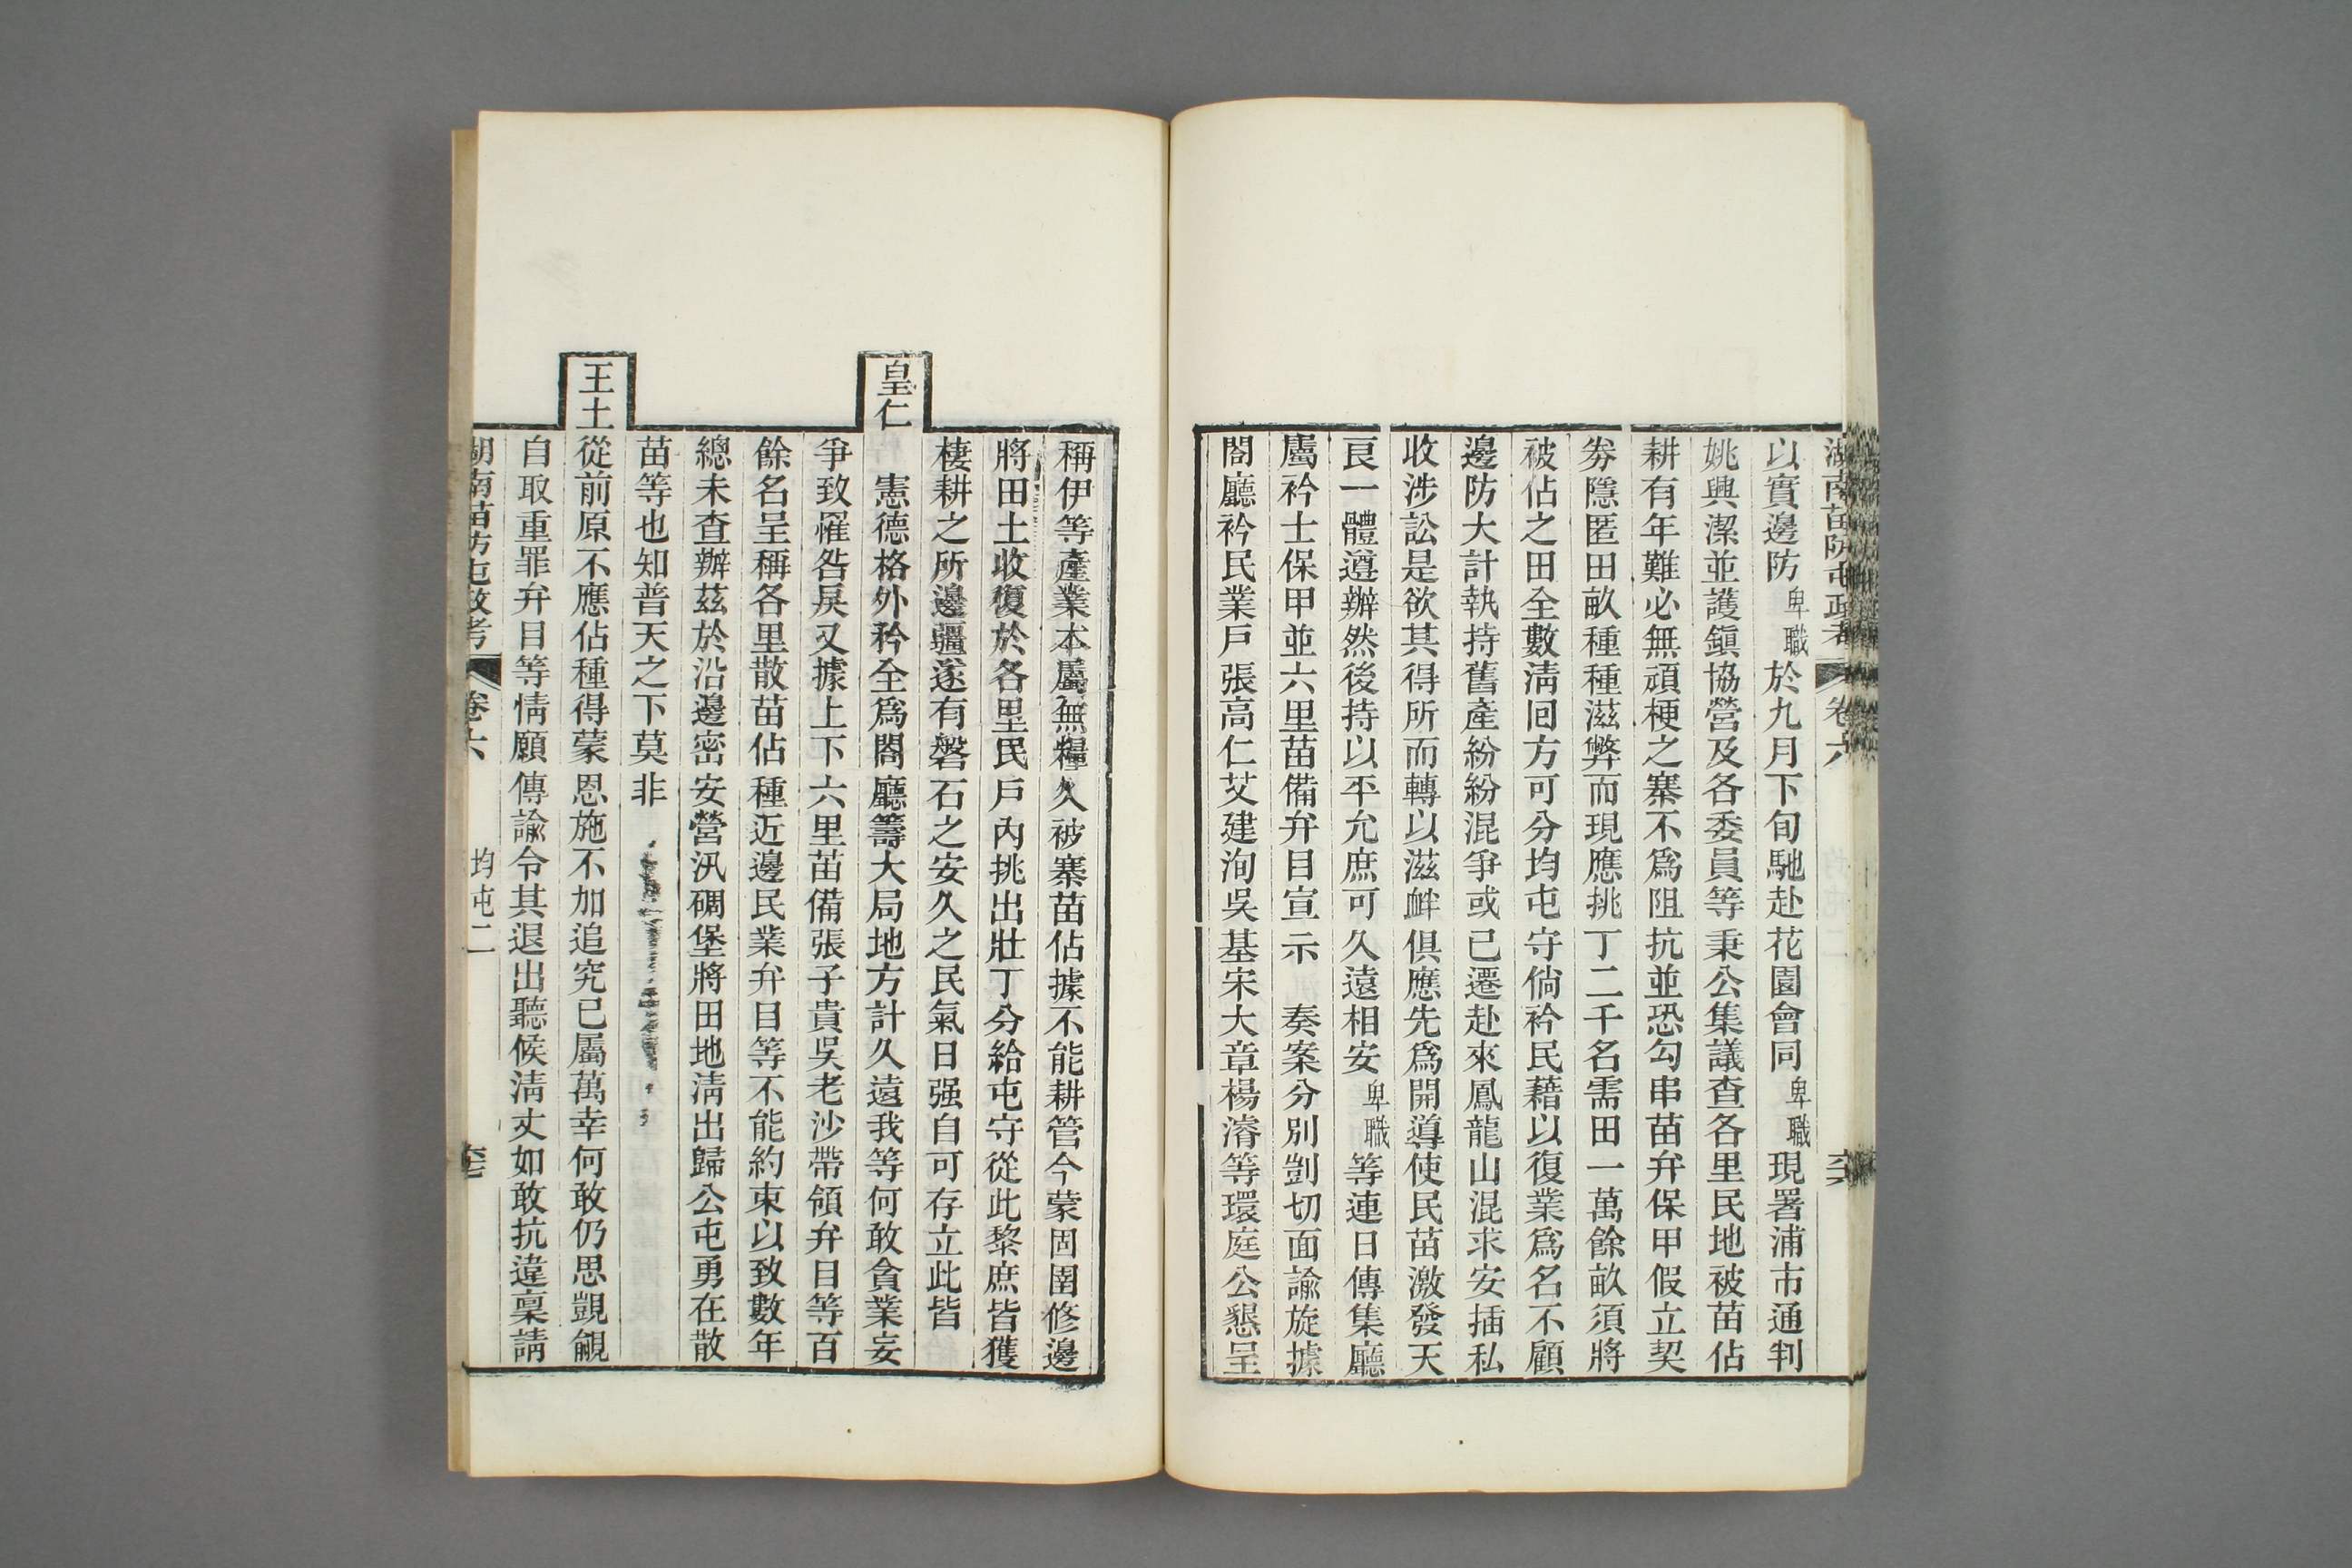 湖南苗防屯政考 卷六 六六
以實邊防卑職於九月下旬馳赴花園會同卑職現署浦市通判
姚興潔並護鎭協營及各委員等秉公集議查各里民地被苗佔
耕有年難必無頑梗之寨不爲阻抗並恐勾串苗弁保甲假立契
劵隱匿田畝種種滋弊而現應挑丁二千名需田一萬餘畝須將
被佔之田全數淸囘方可分均屯守倘衿民藉以復業爲名不顧
邊防大計執持舊產紛紛混爭或已遷赴來鳳龍山混求安插私
收涉訟是欲其得所而轉以滋衅俱應先爲開導使民苗激發天
良一體遵辦然後持以平允庶可久遠相安卑職等連日傳集廳
屬衿士保甲並六里苗備弁目宣示 奏案分別剴切面諭旋據
閤廳衿民業戶張高仁艾建洵吳基宋大章楊濬等環庭公懇呈
稱伊等產業本屬無糧久被寨苗佔據不能耕管今蒙固圉修邊
將田土收復於各里民戶內挑出壯丁分給屯守從此黎庶皆獲
棲耕之所邊疆遂有磐石之安久之民氣日强自可存立此皆
皇仁 憲德格外矜全爲閤廳籌大局地方計久遠我等何敢貪業妄
爭致罹咎戾又據上下六里苗備張子貴吳老沙帶領弁目等百
餘名呈稱各里散苗佔種近邊民業弁目等不能約束以致數年
總未查辦茲於沿邊密安營汛碉堡將田地淸出歸公屯勇在散
苗等也知普天之下莫非
王土從前原不應佔種得蒙恩施不加追究已屬萬幸何敢仍思覬覦
自取重罪弁目等情願傳諭令其退出聽候淸丈如敢抗違稟請
湖南苗防屯政考 卷六 均屯二 六七